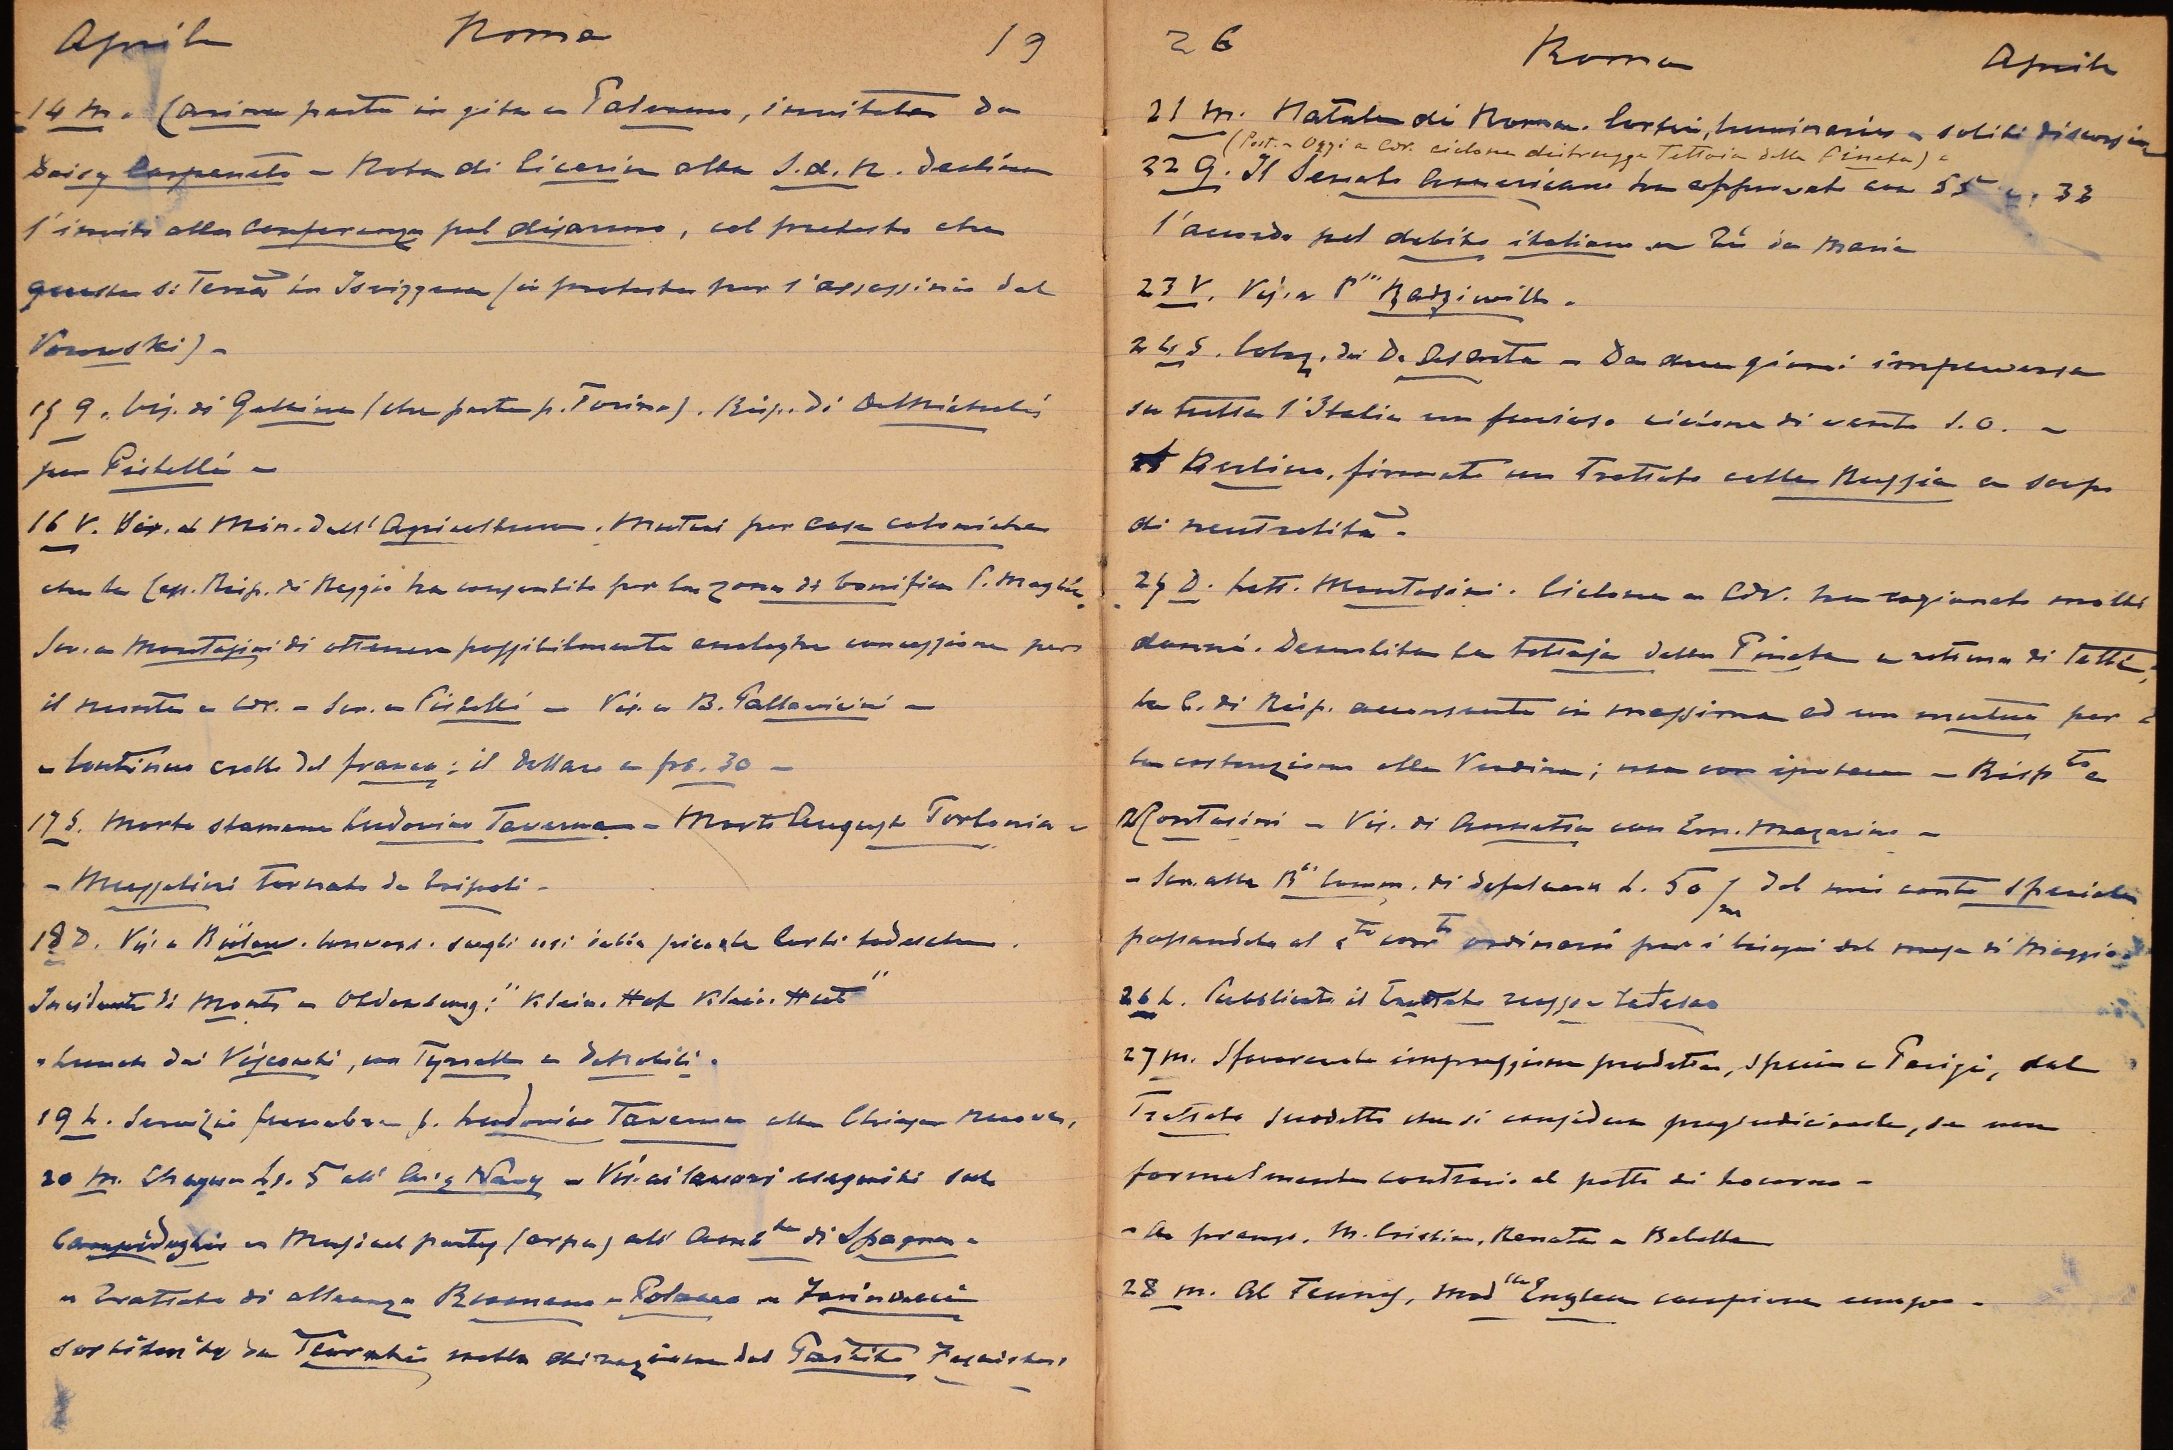 Aprile Roma 19
14 M. Carina parte in gita a Palermo, invitata da
Daisy Carpeneto – Nota di Cicerin alla S.d.N. declina
l'invito alla Conferenza pel disarmo, col pretesto che
questa si terrà in Isvizzera (in protesta per l'assassinio del
Vorowski) –
15 G. Vis. di Gallina (che parte p. Torino). Risp. di DeMichelis
per Pistelli –
16 V. Vis. al Min. dell'Agricoltura. Mutui per case coloniche
che la Cass. Risp. di Reggio ha consentito per la zona di bonifica P. Maghin.
Scr. a Montasini di ottenere possibilmente analoga concessione per
il monte a CdV. – Scr. a Pistelli – Vis. a B. Pallavicini –
– Continuo crollo del franco; il dollaro a frs. 30 –
17 S. Morto stamane Ludovico Taverna – Morto Augusto Torlonia –
– Mussolini tornato da Tripoli –
18 D. Vis. a Bülow. Convers. sugli usi delle piccole Corti tedesche.
Incidente di Monts a Oldenburg: "Klein. Hof Klein. Hut"
– Lunch dai Visconti, con Tyrrell e DeNobili.
19 L. Servizio funebre p. Ludovico Taverna alla Chiesa Nuova.
20 M. Chèque Ls. 5 all' Navy – Vis. ai lavori eseguiti sul
Campidoglio – Musical party (arpa) all' Ambta di Spagna –
– Trattato di alleanza Rumeno – Polacco – Farinacci
sostituito da Turati nella direzione del Partito Fascista.
26 Roma Aprile
21 M. Natale di Roma. Cortei, luminarie e soliti discorsi
(Post. – Oggi a CdV. ciclone distrugge Tettoia della Pineta) –
22 G. Il Senato Americano ha approvato con 55 c. 33
l'accordo pel debito italiano – Tè da Maria
23 V. Vis. a Pssa Radziwill.
24 S. Colaz. dai – Da due giorni imperversa
su tutta l'Italia un furioso ciclone di vento S.O. –
Berlino, firmato un Trattato colla Russia a scopo
di neutralità –
25 D. Lett. Montasini. Ciclone a CdV. ha cagionato molti
danni. Demolita la tettoja della Pineta e rottura di tetti,
la C. di Risp. acconsente in massima ad un mutuo per
la costruzione alla Verdina; ma con ipoteca – Rispto a
Montasini – Vis. di Annetta con Em. Mazarino –
– Scr. alla Bca Comm. di defalcare L. 50/m dal mio conto speciale
passandole al cto corrte ordinario per i bisogni del mese di Maggio
26 L. Pubblicato il Trattato russo – tedesco
27 M. Sfavorevole impressione prodotta, specie a Parigi, dal
Trattato suddetto che si considera pregiudicievole, se non
formalmente contrario al patto di Locarno –
– A pranzo, M. Cristina, Renata e Babella
28 M. Al Tennis, Madlle Englen campione europ. –